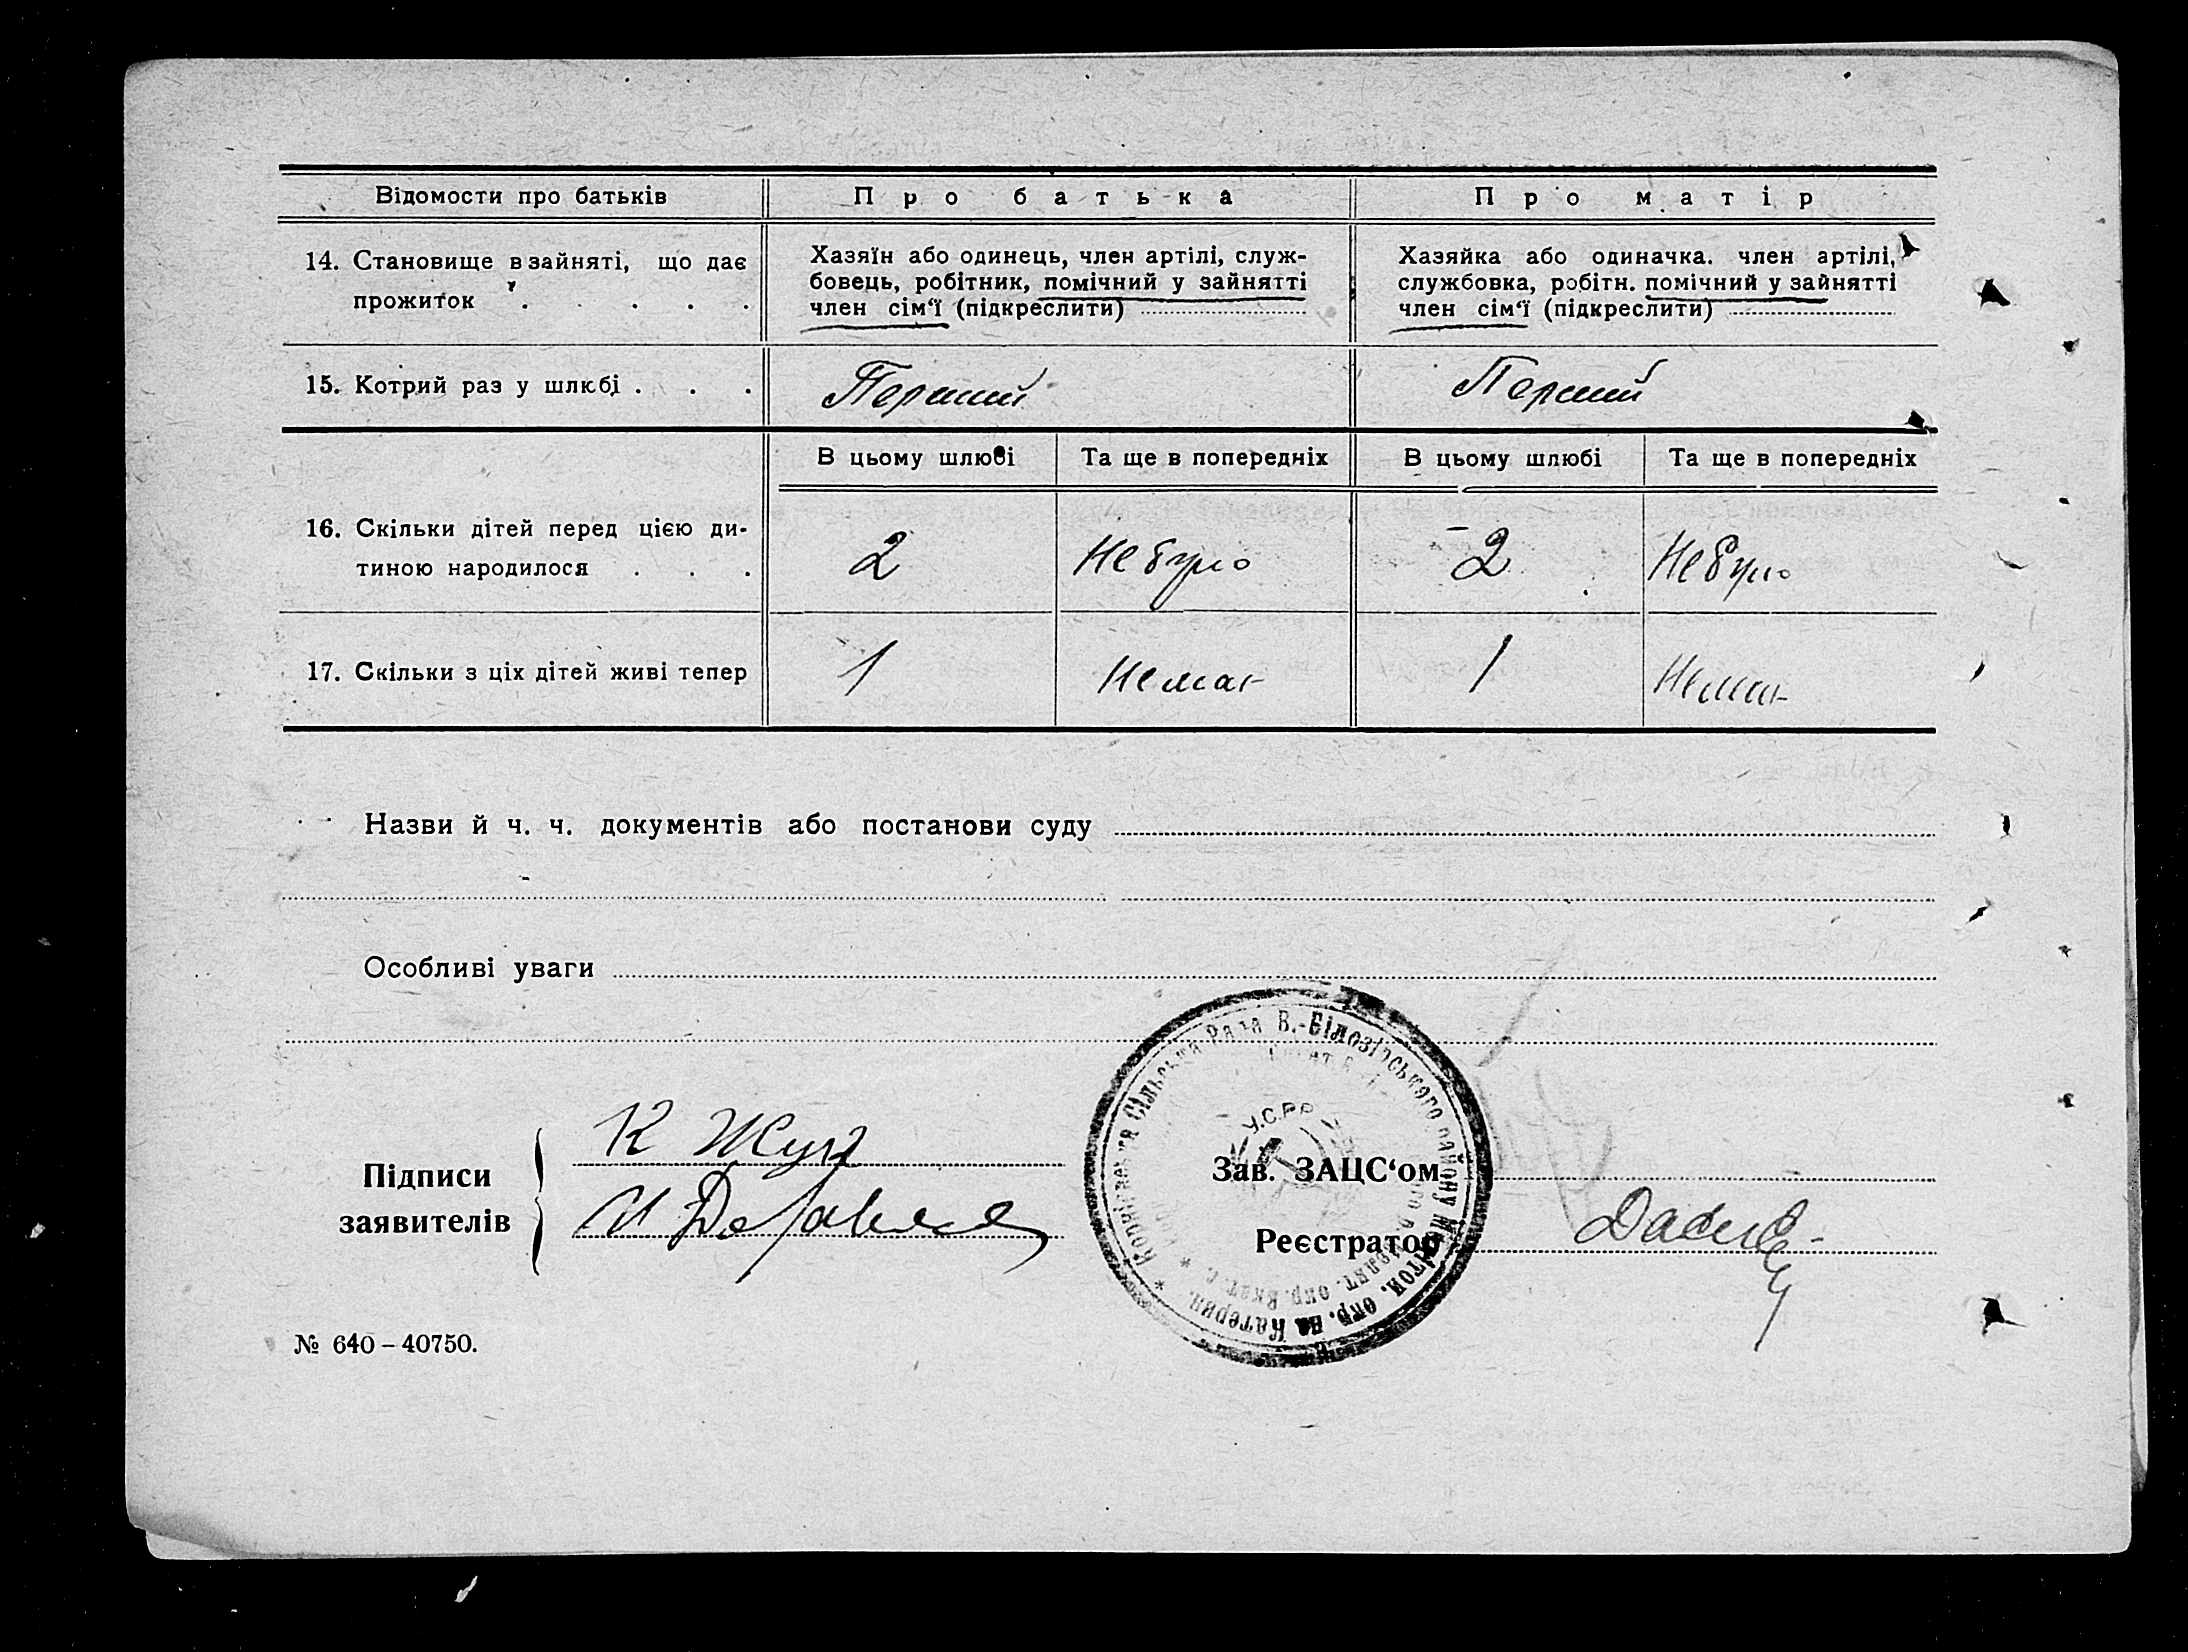 Відомости про батьків
Про батька
Про матір
14. Становище в зайняті, що дає
прожиток . . . .
Хазяїн або одинець, член артілі, служ-
бовець, робітник, помічний у зайнятті
член сім‘ї (підкреслити)
Хазяйка або одиначка. член артілі,
службовка, робітн. помічний у зайнятті
член сім‘ї (підкреслити)
15. Котрий раз у шлюбі . . .
Перший
Перший
В цьому шлюбі
Та ще в попередніх
В цьому шлюбі
Та ще в попередніх
16. Скільки дітей перед цією ди-
тиною народилося . . .
2
Небуло
2
Небуло
17. Скільки з ціх дітей живі тепер
1
Немає
1
Немає
Назви й ч. ч. документів або постанови суду
Особливі уваги
Сільська Рада В.-Білозірського району окр. на Катерин.
У.С.Р.Р.
Підписи
заявителів
К Жук
И
Зав. ЗАЦС‘ом
Реєстратор
№ 640 – 40750.